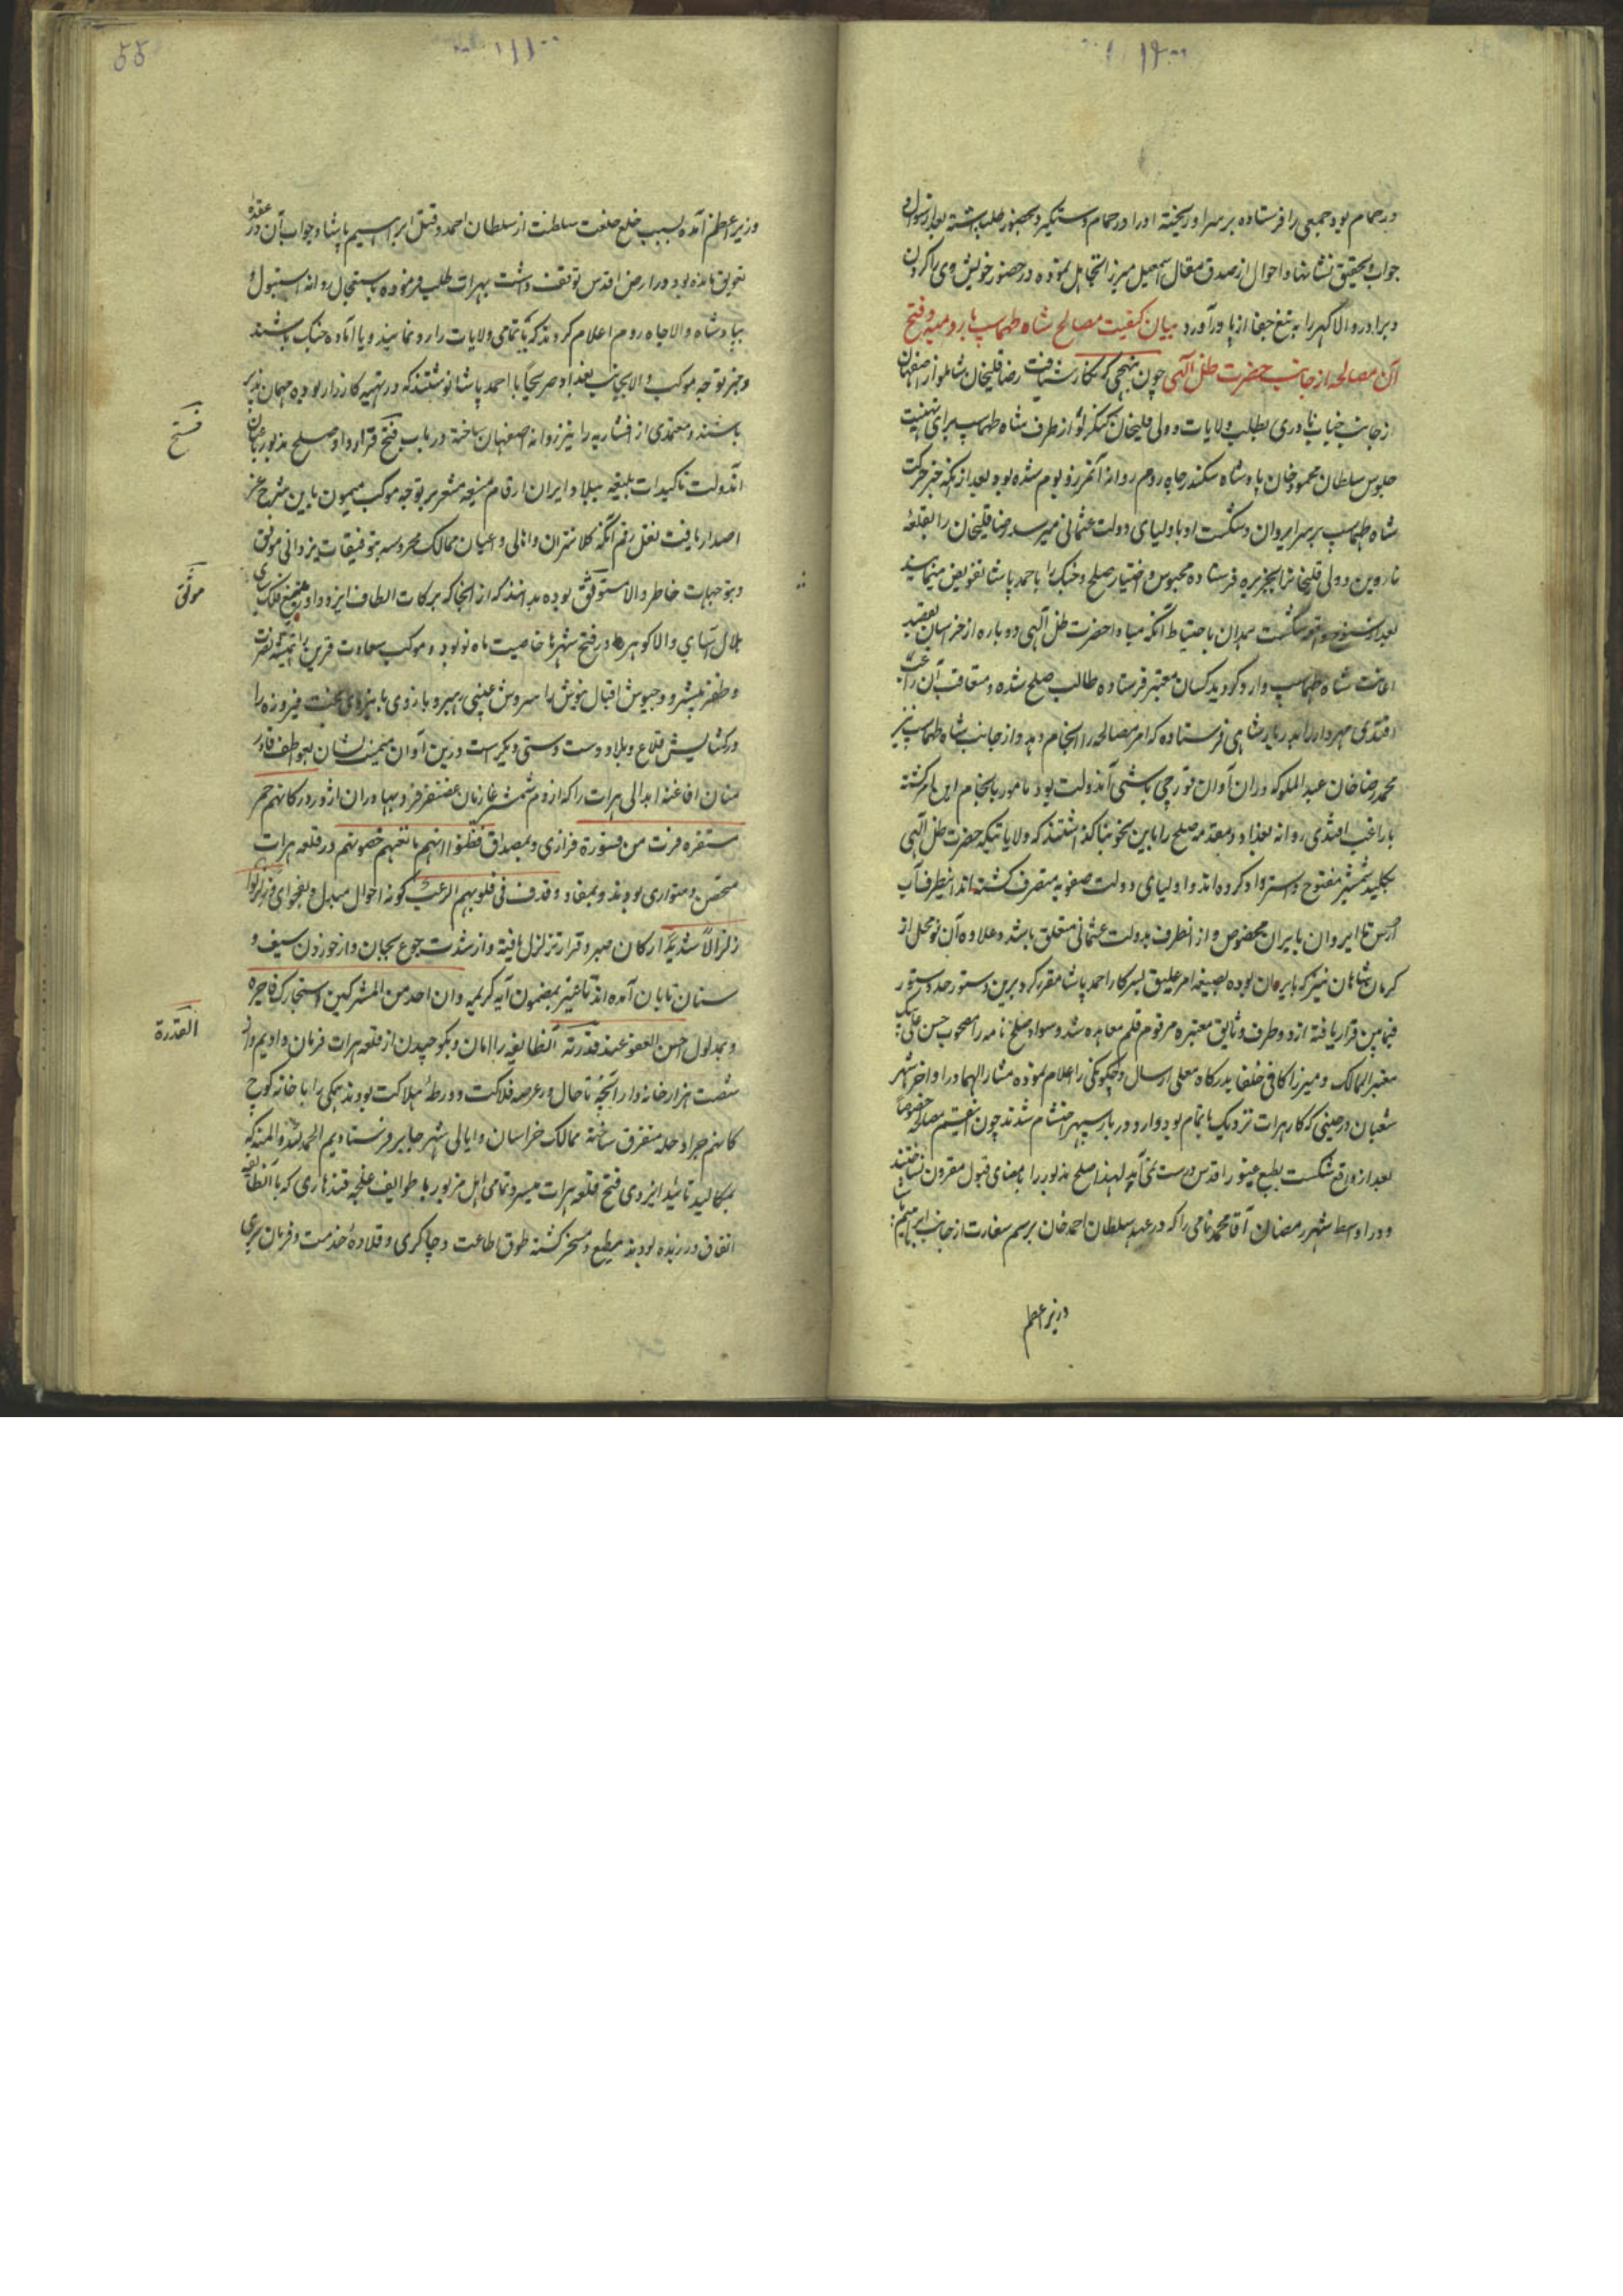 در حمام بود جمعی را فرستاده بر سر او ریخته او را در حمام دستگیر و بحضور طلب داشته بعد از سؤال و
جواب و تحقیق نشانها و احوال از صدق مقال اسمعیل میرزا تجاهل نموده در حضور خویش وی را گردن
و برادر والا گهر را به تیغ جفا از پا درآورد بیان کیفیت مصالح شاه طهماسب با رومیه و فتح
آن مصالحه از جانب حضرت ظل الهی چون بنهجی که نگارش یافت رضا قلیخان شاملو از اصفهان
از جانب جناب نادری بطلب ولایات و ولی قلیخان کنکرلو از طرف شاه طهماسب برای تهنیت
جلوس سلطان محمود خان پادشاه سکندر جاه روم روانه آن مرز و بوم شده بود بعد از آنکه خبر حرکت
شاه طهماسب بر سر ایروان و شکست او باولیای دولت عثمانی میرسد رضا قلیخان را بقلعه
ماردین و ولی قلیخان را بجزیره فرستاده محبوس و اختیار صلح و جنگ را باحمد پاشا تفویض مینمایند
بعد از شکست همدان باحتیاط آنکه مبادا حضرت ظل الهی دوباره از خراسان بقصد
اعانت شاه طهماسب وارد گردید کسان معتبر فرستاده طالب صلح شده و متعاقب آن راغب
افندی مهردار را بدربار شاهی فرستاده که امر مصالحه را انجام دهد و از جانب شاه طهماسب نیز
محمد رضا خان عبداللو که در آن آوان قورچی باشی آندولت بود مامور بانجام این امر گشته
با راغب افندی روانه بغداد و مقدمه صلح را باین نحو بنا گذاشتند که ولایاتیکه حضرت ظل الهی
بکلید شمشیر مفتوح و استرداد کرده اند و اولیای دولت صفویه متصرف گشته اند از اینطرف آب
ارس تا ایروان بایران مخصوص و از آنطرف بدولت عثمانی متعلق باشد و علاوه آن نه محل از
کرمان شاهان نیز که با ایران بوده بصیغه امر علیق بسرکار احمد پاشا مقرر کرد برین دستور حد و سنور
فیمابین قرار یافته از دو طرف وثایق معتبره مرقوم قلم معاهده شد و سواد صلح نامه را مصحوب حسن علی بیک
معیر الممالک و میرزا کافی خلفا بدرگاه معلی ارسال و چگونگی را اعلام نموده مشار الیهما در اواخر شهر
شعبان در حینی که کار هرات نزدیک باتمام بود وارد دربار سپهر احتشام شدند چون اینقسم مصالحه خصوصا
بعد از وقوع شکست بطبع غیور اقدس درست نمی آید لهذا صلح مذبور را بامضای قبول مقرون نساختند
و در اواسط شهر رمضان آقا محمد نامی را که در عهد سلطان احمد خان برسم سفارت از جانب ابراهیم پاشا
وزیر اعظم
وزیر اعظم آمده بسبب خلع خلعت سلطنت از سلطان احمد و قتل ابراهیم پاشا و جواب آن در عقده
تعویق مانده بود و در ارض اقدس توقف داشت بهرات طلب فرموده باستعجال روانه استنبول و
بپادشاه والا جاه روم اعلام کردند که یا تمامی ولایات را رد نمایند و یا آماده جنگ باشند
و خبر توجه موکب والا بجانب بغداد صریحا با احمد پاشا نوشتند که در تهیه کارزار بوده مهمان پذیر
باشند و معتمدی از افشاریه را نیز روانه اصفهان ساخته در باب فتح قرارداد صلح مذبور باعیان
فتح
آندولت تاکیدات بلیغه ببلاد ایران ارقام منیعه مشعر بر توجه موکب میمون باین شرح عز
اصدار یافت نقل رقم آنکه کلانتران و اهالی و اعیان ممالک محروسه بتوفیقات یزدانی موفق
و بتوجهات خاطر والا مستوثق بوده بدانند که از آنجا که برکات الطاف ایزد داور تیغ فلک سای
موثق
هلال آسای والا گوهر ما در فتح شهرها خاصیت ماه نو بود و موکب سعادت قرین را همیشه نصرت
و ظفر پیشرو و جیوش اقبال نیوش را سروش غیبی رهبر و بازوی با نیروی بخت فیروزه را
در گشایش قلاع و بلاد دست دستی دیگر است درین آوان میمنت نشان بعواطف قادر
منان افاغنه ابدالی هرات را که از دم شمشیر غازیان غضنفر فر و بهادران اژدر در کانهم حمر
مستنفره فرت من قسورة فراری و بمصداق فظنوا انهم مانعهم حصونهم در قلعه هرات
متحصن و متواری بودند و بمفاد و قذف فی قلوبهم الرعب گونه احوال مبدل و بفحوای و زلزلوا
زلزالا شدیدا ارکان صبر و قرار تزلزل یافته و از شدت جوع بجان و از خوردن سیف و
سنان بامان آمده اند تا غیر بمضمون آیه کریمه و ان احد من المشرکین استجارک فاجره
و بمدلول احسن العفو عند قدرته آنطایفه را امان و بکوچیدن از قلعه هرات فرمان دادیم و از
القدرة
شصت هزار خانه وار آنچه تا حال در عرصه فلاکت و ورطه هلاکت بودند همگی را با خانه کوچ
کانهم جراد جمله متفرق ساخته بممالک خراسان و اهالی شهر جابر فرستادیم الحمد لله و المنه که
بمکالید تائید ایزدی فتح قلعه هرات میسر و تمامی اهل مزبور با طوایف غلجه قندهاری که با آنطایفه
اتفاق ورزیده بودند مطیع و مسخر گشته طوق اطاعت و چاکری و قلاده خدمت و فرمان بری